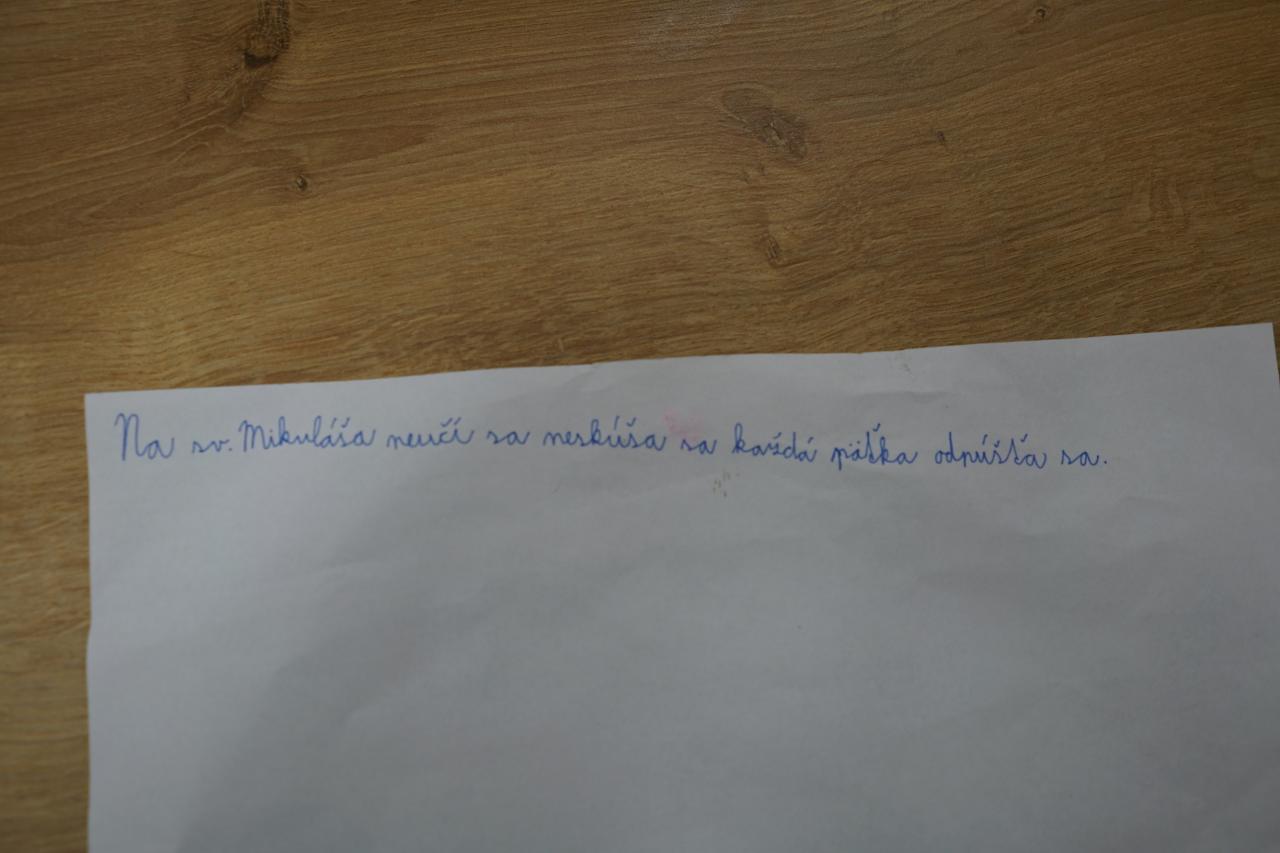 Na sv. Mikuláša neučí sa neskúša sa každá päťka odpúšťa sa.